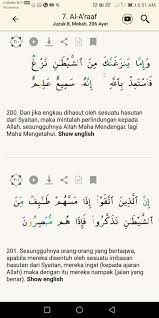 6:51 AM
7. Al-A'raaf
Juzuk 8, Mekah, 206 Ayat
وَإِمَّا يَنزَغَنَّكَ مِنَ الشَّيْطَٰنِ نَزْغٌ
فَاسْتَعِذْ بِاللَّهِ ۚ إِنَّهُ سَمِيعٌ عَلِيمٌ
200. Dan jika engkau dihasut oleh sesuatu hasutan
dari Syaitan, maka mintalah perlindungan kepada
Allah, sesungguhnya Allah Maha Mendengar, lagi
Maha Mengetahui. Show english
إِنَّ الَّذِينَ اتَّقَوْا إِذَا مَسَّهُمْ طَٰٓئِفٌ مِّنَ
الشَّيْطَٰنِ تَذَكَّرُوا فَإِذَا هُم مُّبْصِرُونَ
201. Sesungguhnya orang-orang yang bertaqwa,
apabila mereka disentuh oleh sesuatu imbasan
hasutan dari Syaitan, mereka ingat (kepada ajaran
Allah) maka dengan itu mereka nampak (jalan yang
benar). Show english